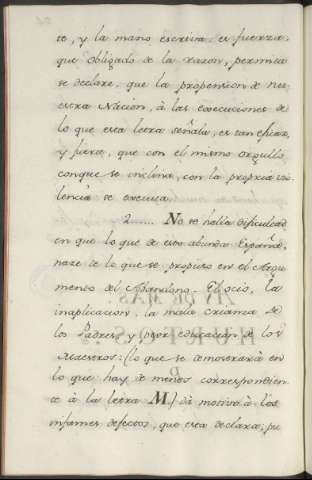 te, y la mano escriva: es fuerza,
que obligado de la razon, permita
se declare, que la propension de nu=
estra Nacion, à las execuciones de
lo que esta letra señala, es tan eficaz,
y fuera, que con el mismo orgullo
conque se inclina, con la propria vio=
lencia se executa.
2...... No se halla dificultad
en que lo que de esto abunda España,
naze de lo que se propuso en el Argu=
mento del Abandono. El ocio, la
inaplicacion, la mala crianza de
los Padres, y peor educacion de los
Maestros: (lo que se demostrarà en
lo que hay de menos correspondien=
te à la letra M.) dà motivo à los
infames defectos, que esta declara; pu